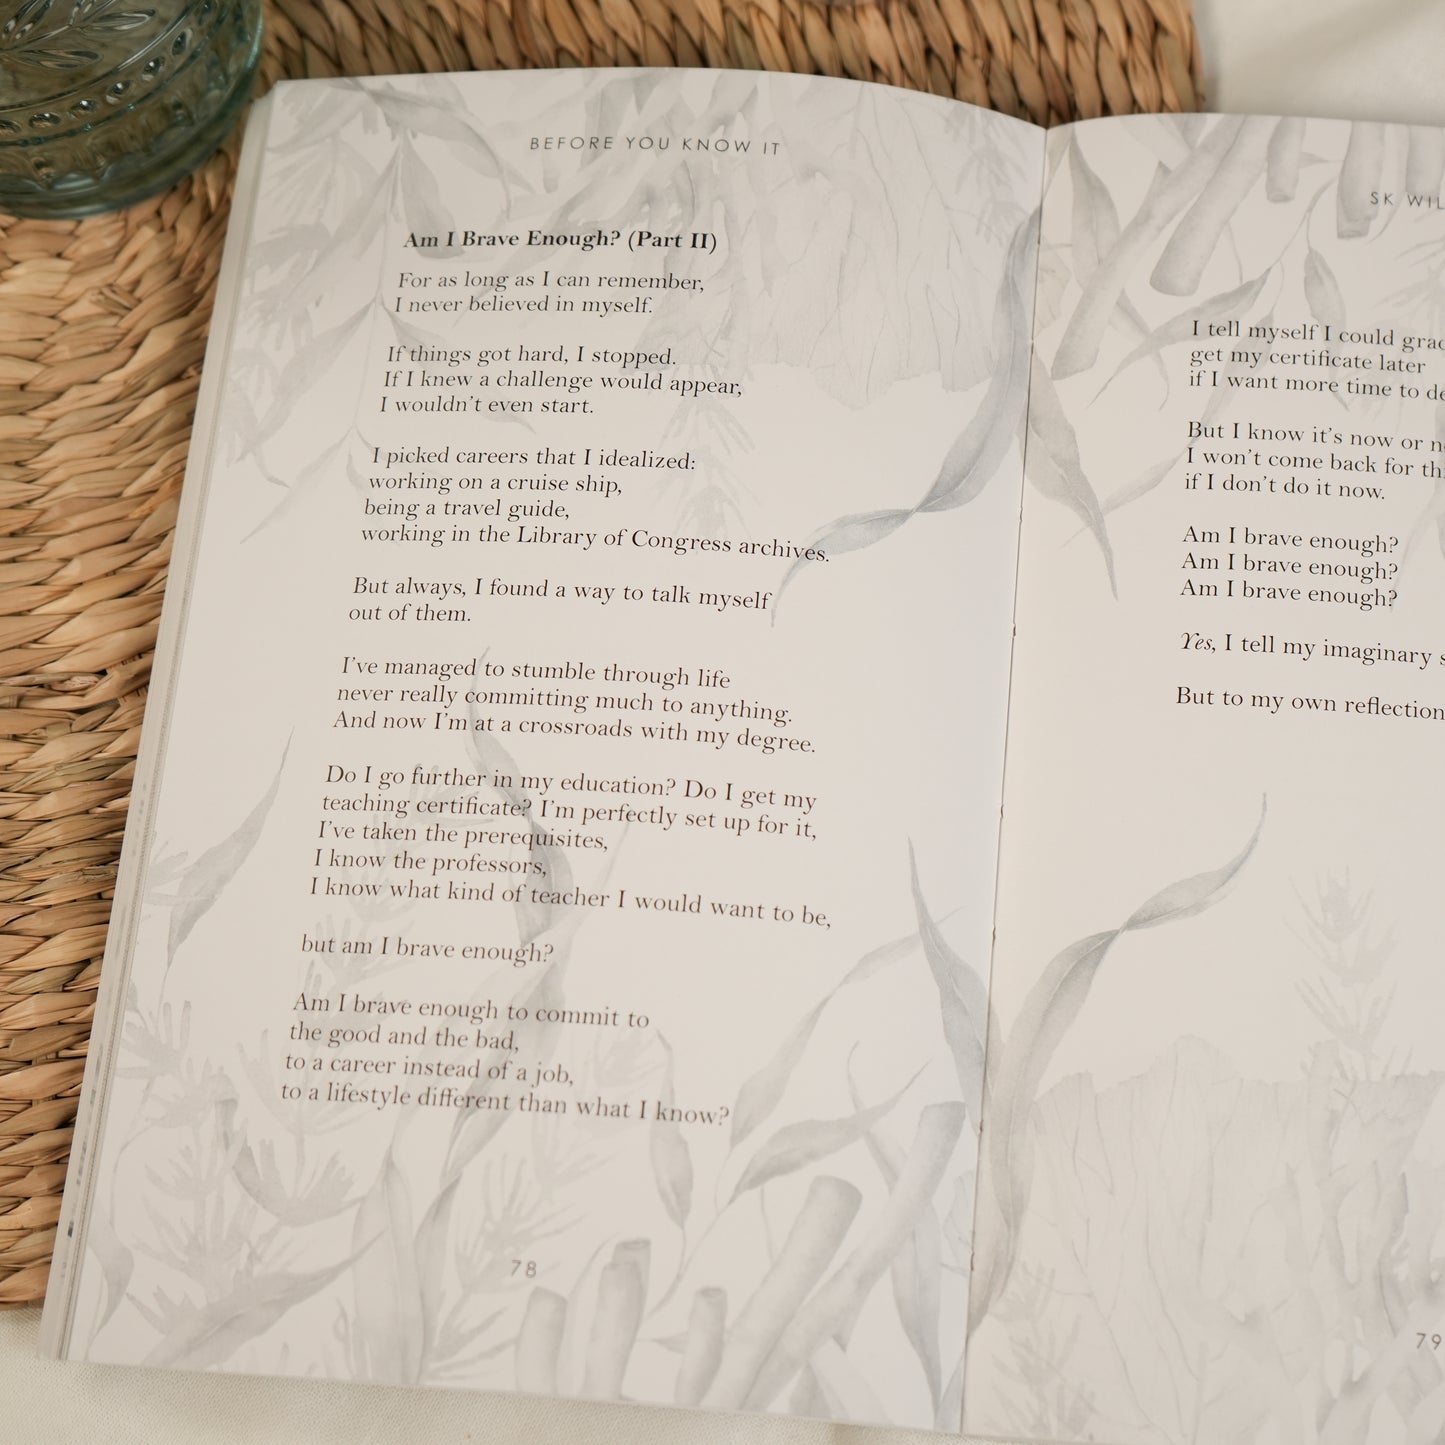 BEFORE YOU KNOW IT
Am I Brave Enough? (Part II)
For as long as I can remember,
I never believed in myself.
If things got hard, I stopped.
If I knew a challenge would appear,
I wouldn't even start.
I picked careers that I idealized:
working on a cruise ship,
being a travel guide,
working in the Library of Congress archives.
But always, I found a way to talk myself
out of them.
I've managed to stumble through life
never really committing much to anything.
And now I'm at a crossroads with my degree.
Do I go further in my education? Do I get my
teaching certificate? I'm perfectly set up for it,
I've taken the prerequisites,
I know the professors,
I know what kind of teacher I would want to be,
but am I brave enough?
Am I brave enough to commit to
the good and the bad,
to a career instead of a job,
to a lifestyle different than what I know?
78
SK
I tell myself I could
get my certificate later
if I want more time to
But I know it's now or
I won't come back for
if I don't do it now.
Am I brave enough?
Am I brave enough?
Am I brave enough?
Yes, I tell my imaginary
But to my own reflection
79